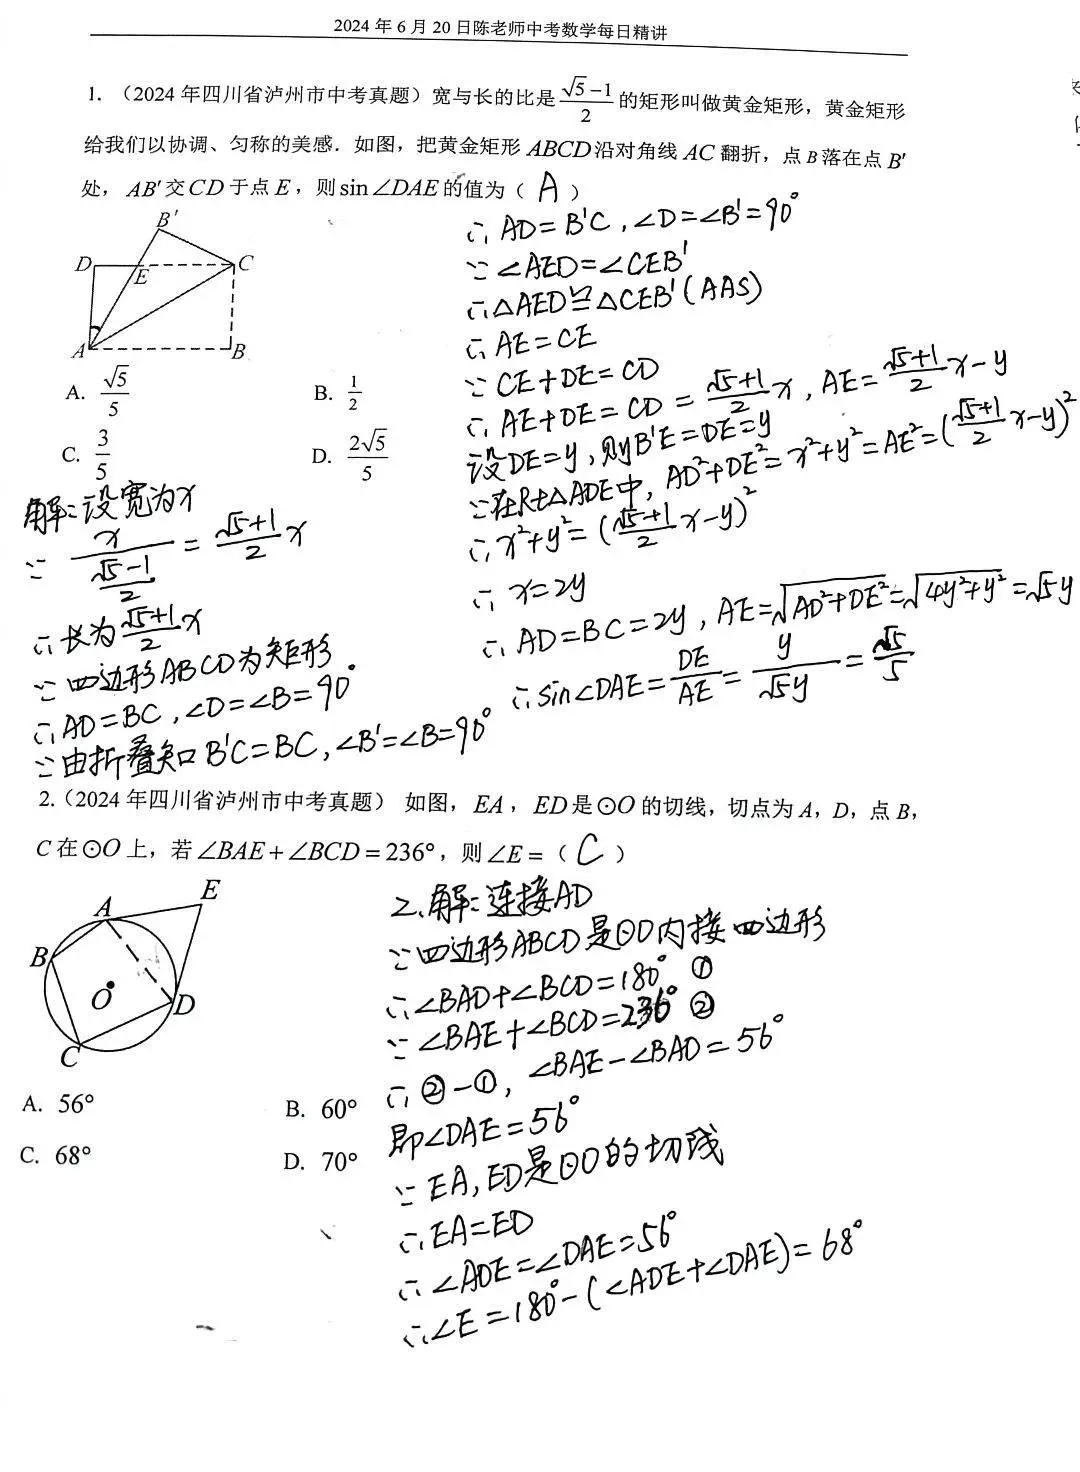 2024年6月20日陈老师中考数学每日精讲
1. （2024年四川省泸州市中考真题）宽与长的比是(√5-1)/2的矩形叫做黄金矩形，黄金矩形
给我们以协调、匀称的美感．如图，把黄金矩形ABCD沿对角线AC翻折，点B落在点B'
处，AB'交CD于点E，则sin∠DAE的值为（ A ）
B'
D E C
A B
A. √5/5 B. 1/2
C. 3/5 D. 2√5/5
解：设宽为x
∵ x/((√5-1)/2) = (√5+1)/2 x
∴长为(√5+1)/2 x
∵四边形ABCD为矩形
∴AD=BC，∠D=∠B=90°
∵由折叠知B'C=BC，∠B'=∠B=90°
∴AD=B'C，∠D=∠B'=90°
∵∠AED=∠CEB'
∴△AED≌△CEB'(AAS)
∴AE=CE
∵CE+DE=CD
∴AE+DE=CD=(√5+1)/2 x，AE=(√5+1)/2 x-y
设DE=y，则B'E=DE=y
∵在Rt△ADE中，AD²+DE²=x²+y²=AE²=((√5+1)/2 x-y)²
∴x²+y²=((√5+1)/2 x-y)²
∴x=2y
∴AD=BC=2y，AE=√(AD²+DE²)=√(4y²+y²)=√5y
∴sin∠DAE=DE/AE=y/(√5y)=√5/5
2.（2024年四川省泸州市中考真题） 如图，EA，ED是⊙O的切线，切点为A，D，点B，
C在⊙O上，若∠BAE+∠BCD=236°，则∠E=（ C ）
E
A
B
O D
C
A. 56° B. 60°
C. 68° D. 70°
2、解：连接AD
∵四边形ABCD是⊙O内接四边形
∴∠BAD+∠BCD=180° ①
∵∠BAE+∠BCD=236° ②
∴②-①，∠BAE-∠BAD=56°
即∠DAE=56°
∵EA，ED是⊙O的切线
∴EA=ED
∴∠ADE=∠DAE=56°
∴∠E=180°-(∠ADE+∠DAE)=68°